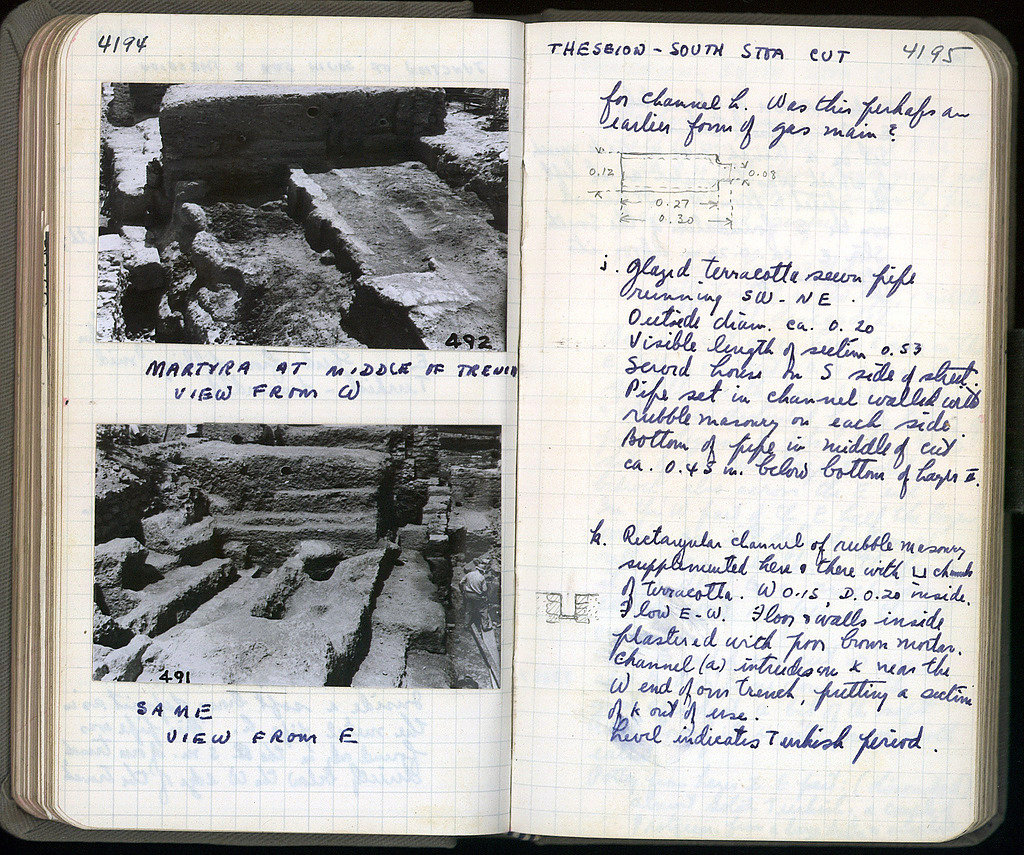 4194
492
MARTYRA AT MIDDLE OF TRENCH
VIEW FROM W
491
SAME
VIEW FROM E
THESEION - SOUTH STOA CUT
4195
for channel h. Was this perhaps an
earlier form of gas main?
0.12
0.08
0.27
0.30
j. Glazed terracotta sewer pipe
running SW - NE.
Outside diam. ca. 0.20
Visible length of section 0.53
Second house on S side of street.
Pipe set in channel walled with
rubble masonry on each side.
Bottom of pipe in middle of cut
ca. 0.43 m. below bottom of Layer II.
k. Rectangular channel of rubble masonry
supplemented here & there with ⊔ channels
of terracotta. W 0.15, D. 0.20 inside.
Flow E-W. Floor & walls inside
plastered with poor brown mortar.
Channel (a) intrudes on k near the
W end of our trench, putting a section
of k out of use.
Level indicates Turkish period.